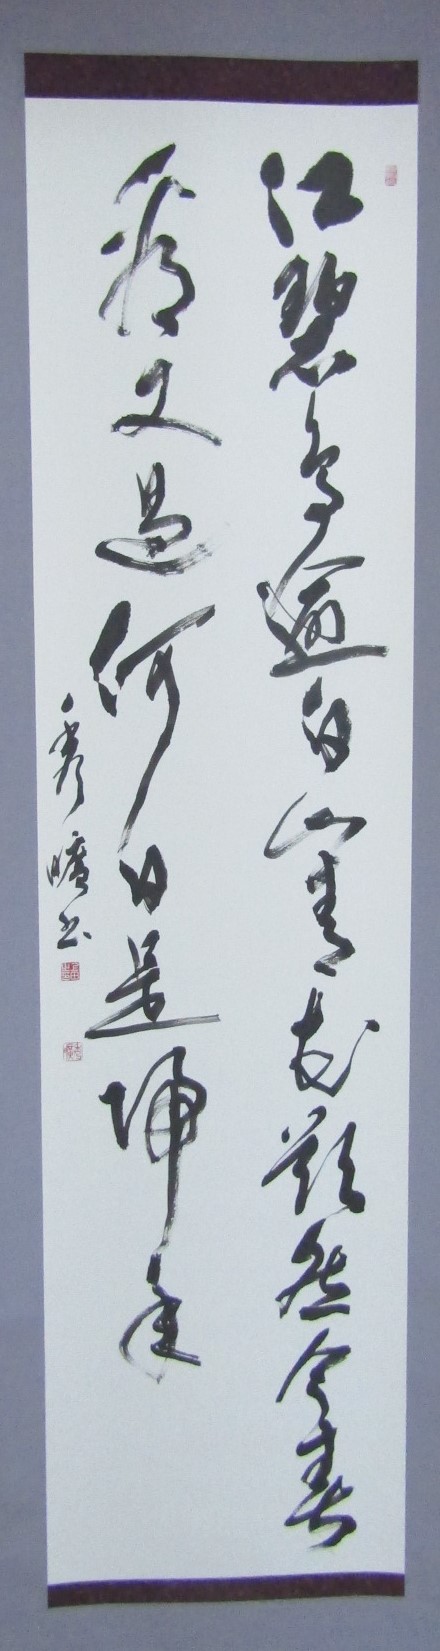 江碧鳥逾白山青花欲然今春
看又過何日是帰年
秀曠書